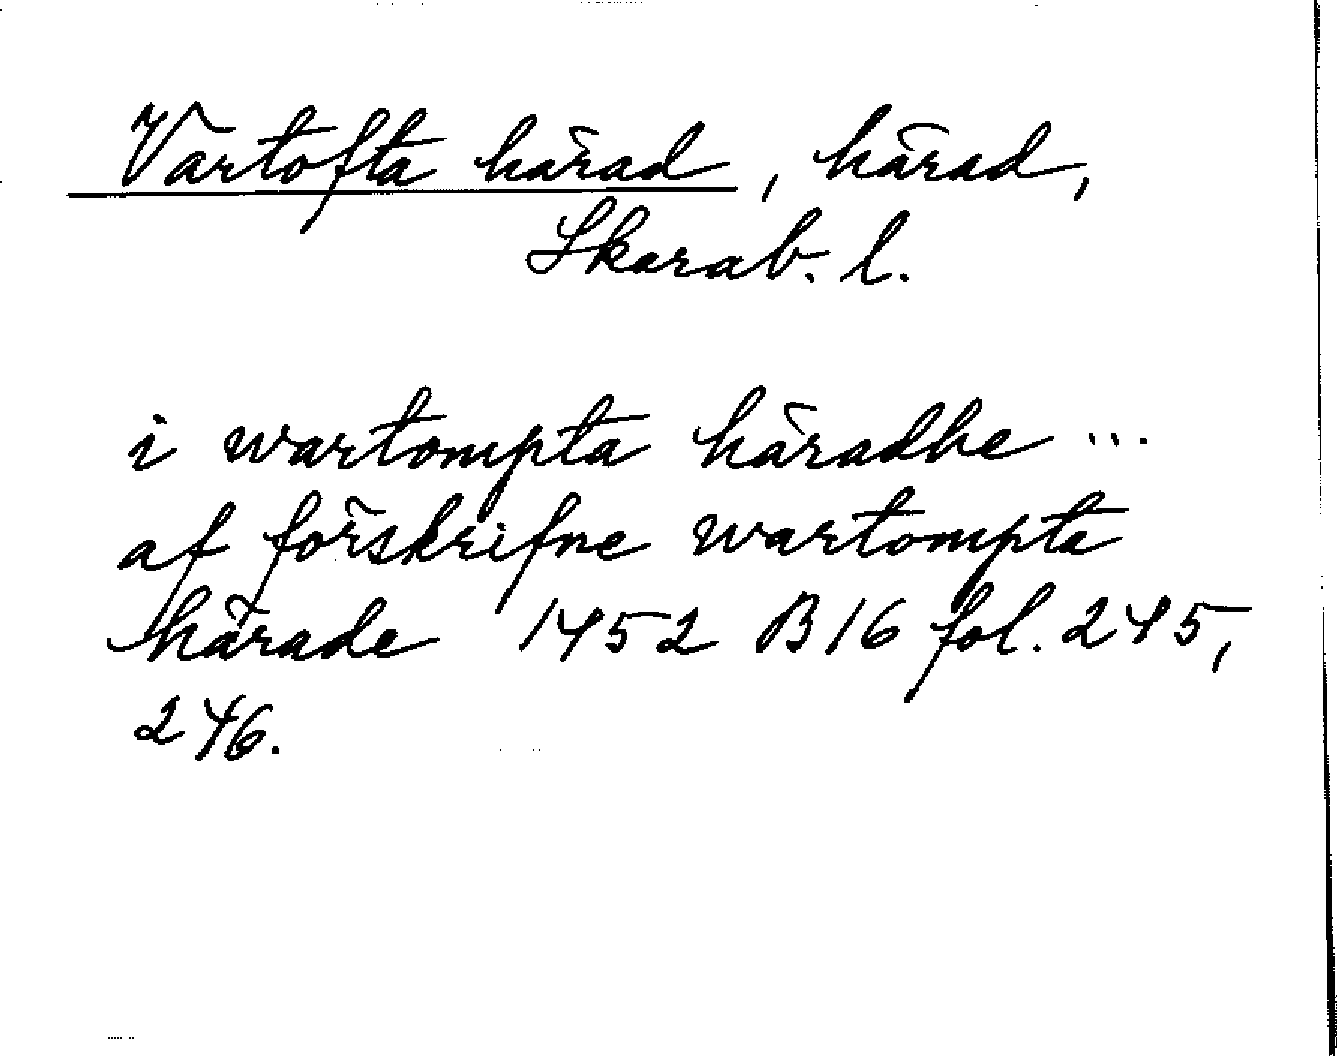 Vartofta härad, härad,
Skarab. l.
i wartompta häradhe ...
af förskrifne wartompta
härade 1452 B16 fol. 245,
246.